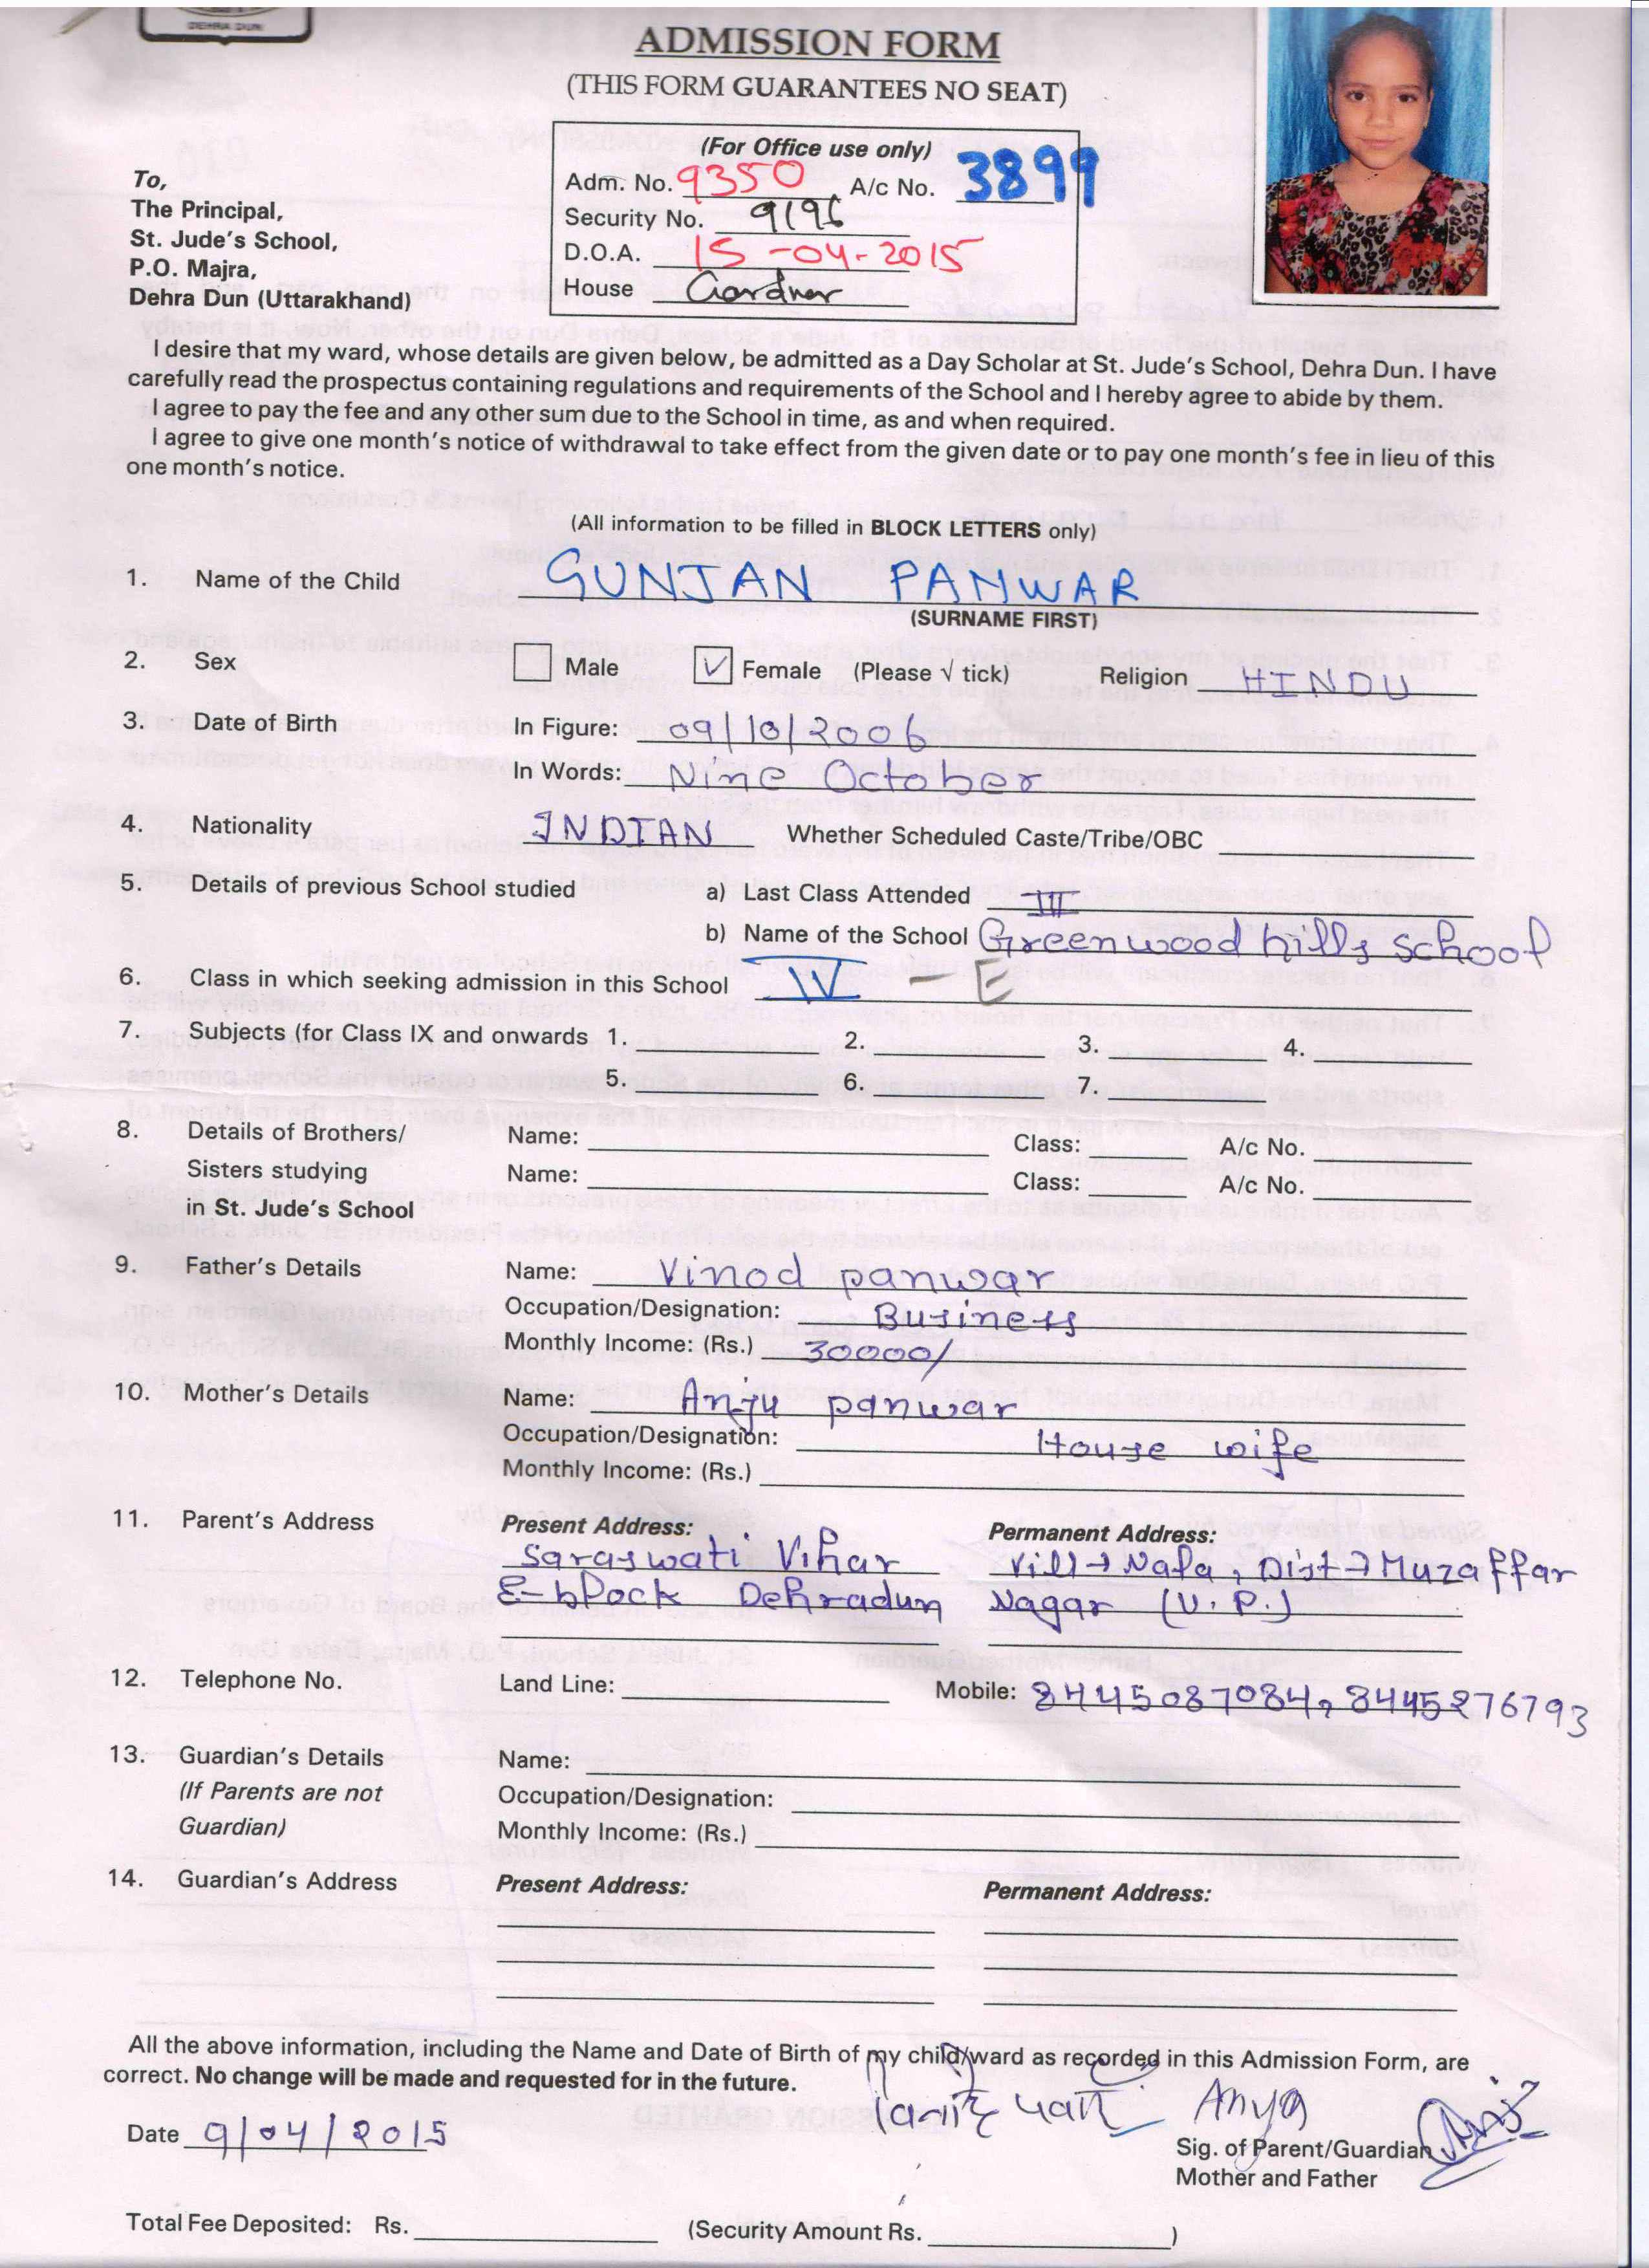 DEHRA DUN
ADMISSION FORM
(THIS FORM GUARANTEES NO SEAT)
(For Office use only)
Adm. No. 9350 A/c No. 3899
Security No. 9196
D.O.A. 15-04-2015
House Gardner
To,
The Principal,
St. Jude's School,
P.O. Majra,
Dehra Dun (Uttarakhand)
I desire that my ward, whose details are given below, be admitted as a Day Scholar at St. Jude's School, Dehra Dun. I have
carefully read the prospectus containing regulations and requirements of the School and I hereby agree to abide by them.
I agree to pay the fee and any other sum due to the School in time, as and when required.
I agree to give one month's notice of withdrawal to take effect from the given date or to pay one month's fee in lieu of this
one month's notice.
(All information to be filled in BLOCK LETTERS only)
1. Name of the Child GUNJAN PANWAR
(SURNAME FIRST)
2. Sex Male ✓ Female (Please √ tick) Religion HINDU
3. Date of Birth In Figure: 09/10/2006
In Words: Nine October
4. Nationality INDIAN Whether Scheduled Caste/Tribe/OBC
5. Details of previous School studied a) Last Class Attended III
b) Name of the School Greenwood hills school
6. Class in which seeking admission in this School IV - E
7. Subjects (for Class IX and onwards 1. 2. 3. 4.
5. 6. 7.
8. Details of Brothers/ Name: Class: A/c No.
Sisters studying Name: Class: A/c No.
in St. Jude's School
9. Father's Details Name: Vinod panwar
Occupation/Designation: Business
Monthly Income: (Rs.) 30000/
10. Mother's Details Name: Anju panwar
Occupation/Designation: House wife
Monthly Income: (Rs.)
11. Parent's Address Present Address: Permanent Address:
Saraswati Vihar Vill→Nala, Dist→Muzaffar
E-block Dehradun Nagar (U.P.)
12. Telephone No. Land Line: Mobile: 8445087084, 8445276793
13. Guardian's Details Name:
(If Parents are not Occupation/Designation:
Guardian) Monthly Income: (Rs.)
14. Guardian's Address Present Address: Permanent Address:
All the above information, including the Name and Date of Birth of my child/ward as recorded in this Admission Form, are
correct. No change will be made and requested for in the future.
Date 9/04/2015
Sig. of Parent/Guardian
Mother and Father
Total Fee Deposited: Rs. (Security Amount Rs. )